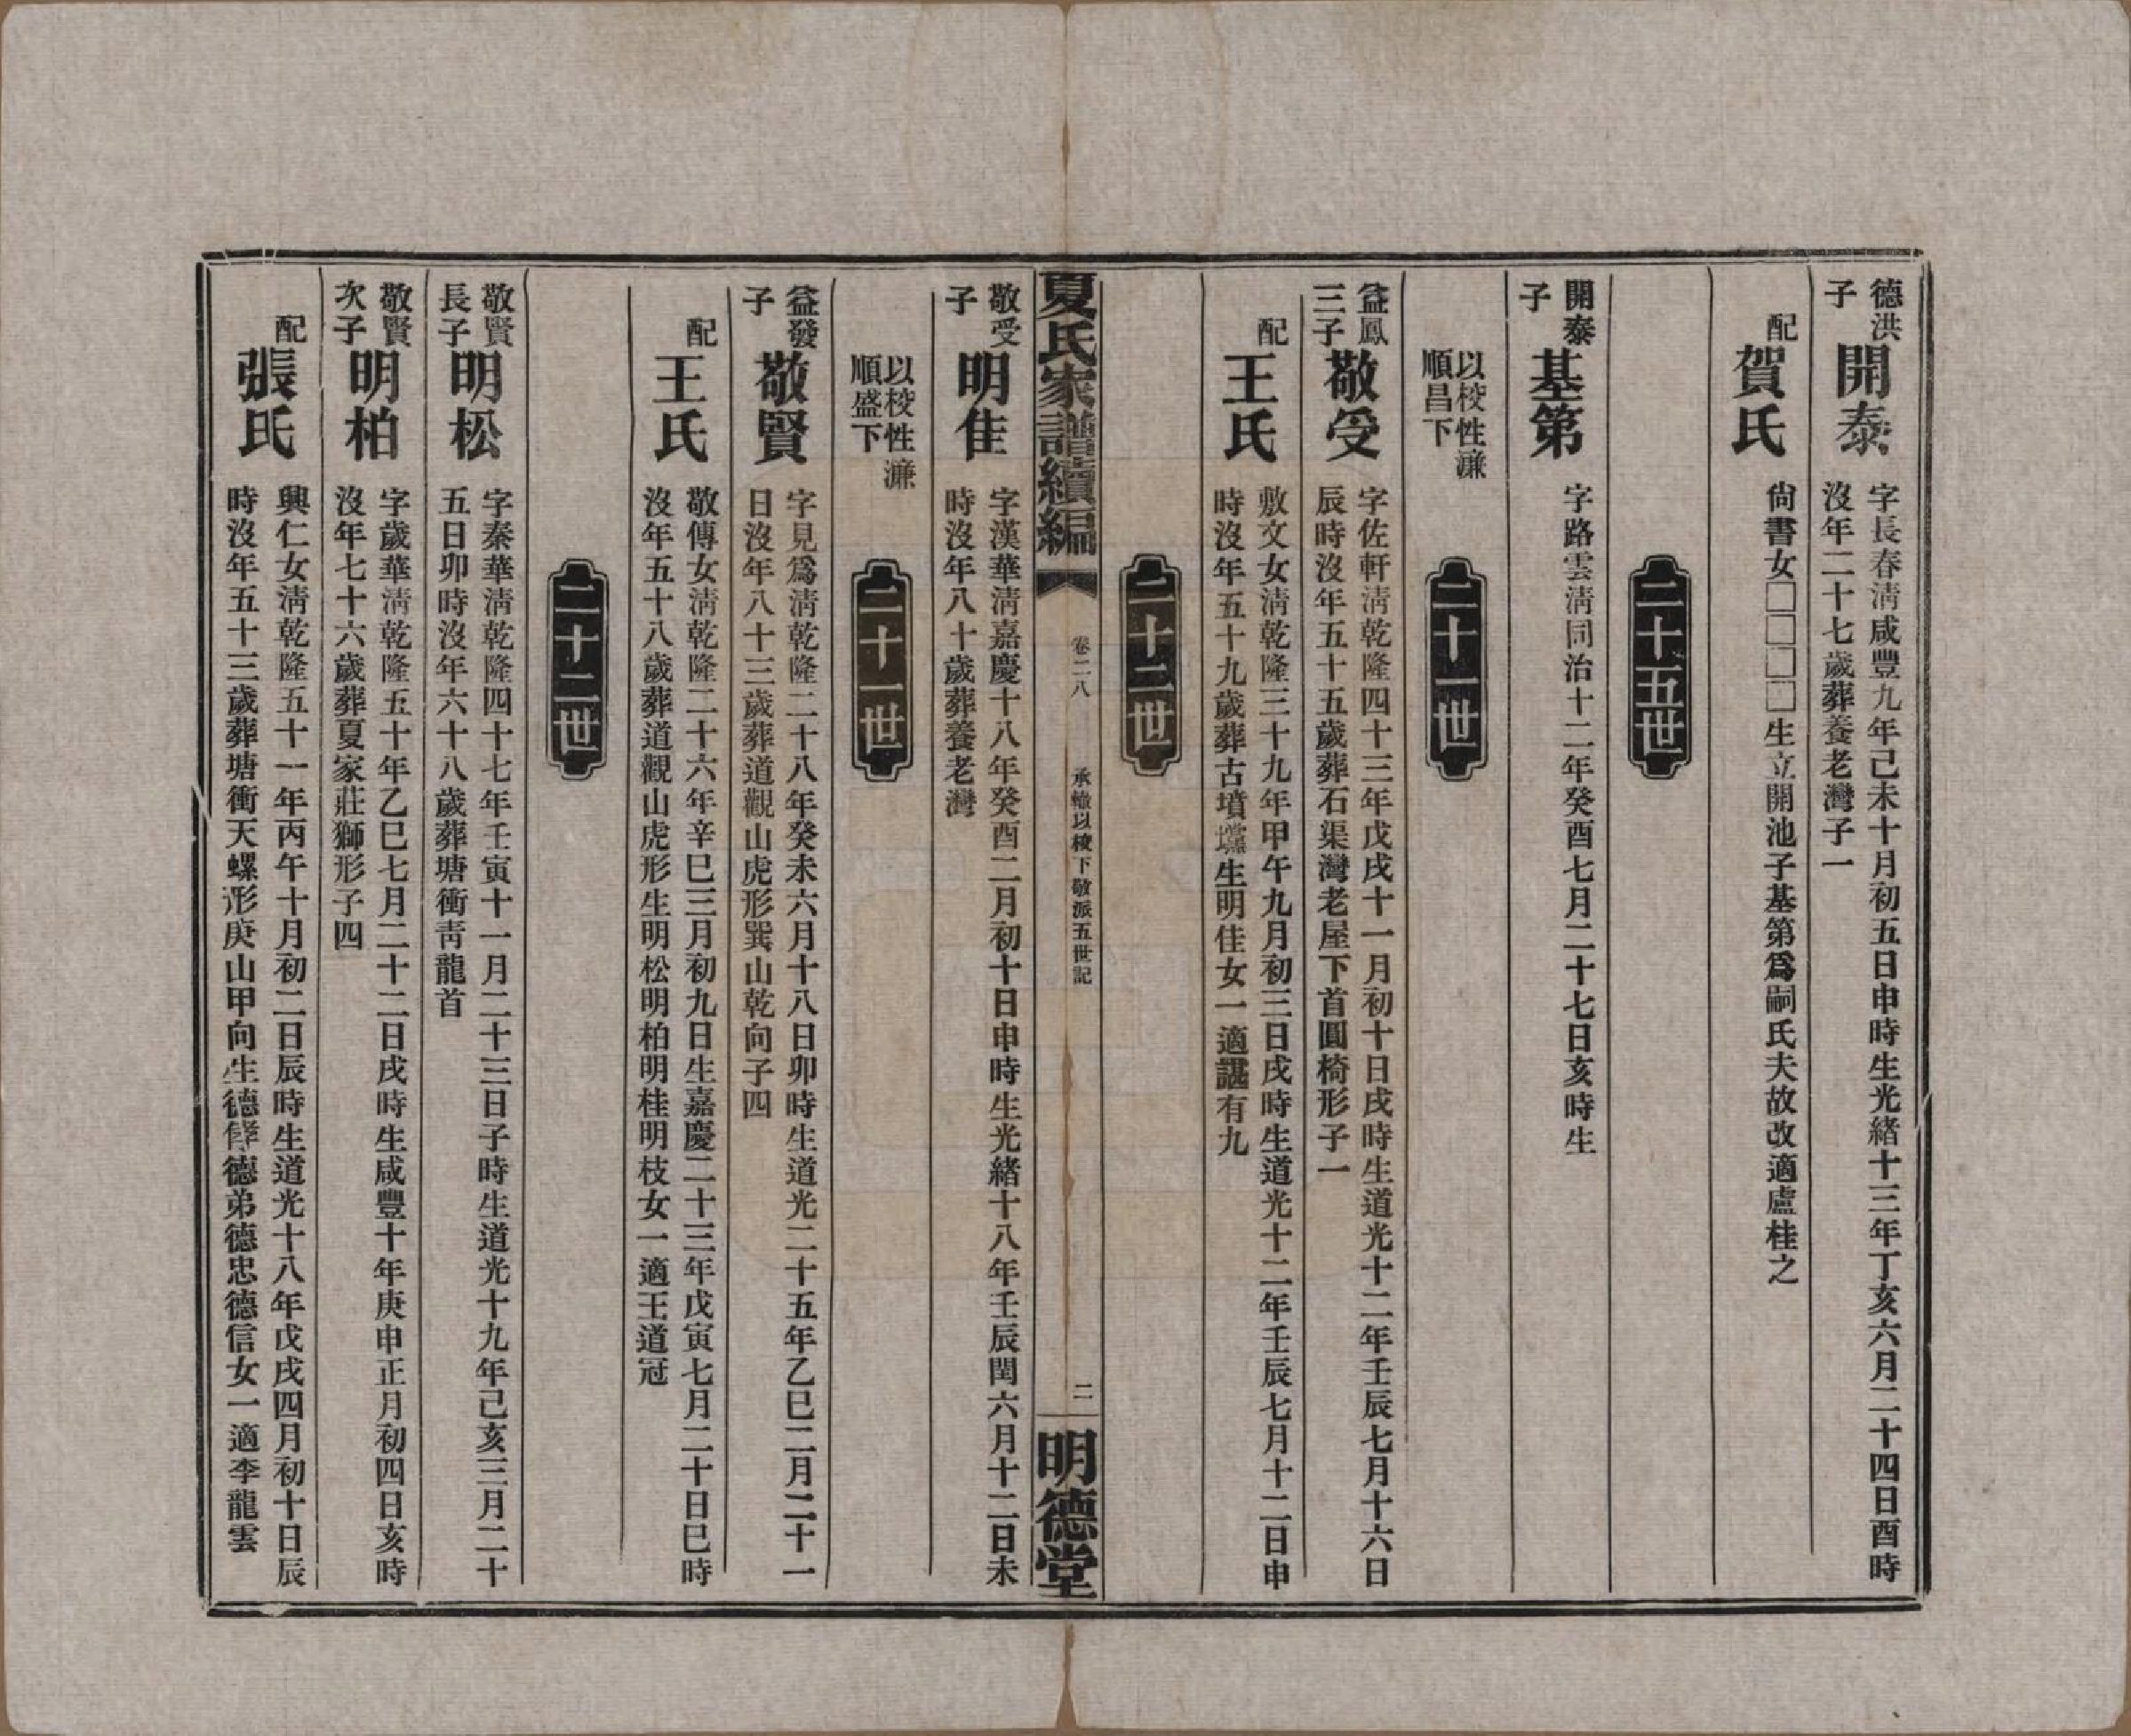 德洪
子
開泰
字長春淸咸豐九年己未十月初五日申時生光緒十三年丁亥六月二十四日酉時
沒年二十七歲葬養老灣子一
配
賀氏
尙書女□□□□生立開池子基第爲嗣氏夫故改適盧桂之
二十五世
開泰
子
基第
字路雲淸同治十二年癸酉七月二十七日亥時生
以稜性濂
順昌下
二十一世
益鳳
三子
敬受
字佐軒淸乾隆四十三年戊戌十一月初十日戌時生道光十二年壬辰七月十六日
辰時沒年五十五歲葬石渠灣老屋下首圓椅形子一
配
王氏
敷文女淸乾隆三十九年甲午九月初三日戌時生道光十二年壬辰七月十二日申
時沒年五十九歲葬古墳壪生明佳女一適諶有九
二十二世
夏氏家譜續編
卷二八
承繼以稜下敬派五世記
二
明德堂
敬受
子
明佳
字漢華淸嘉慶十八年癸酉二月初十日申時生光緒十八年壬辰閏六月十二日未
時沒年八十歲葬養老灣
以稜性濂
順盛下
二十一世
益發
子
敬賢
字見爲淸乾隆二十八年癸未六月十八日卯時生道光二十五年乙巳二月二十一
日沒年八十三歲葬道觀山虎形巽山乾向子四
配
王氏
敬傳女淸乾隆二十六年辛巳三月初九日生嘉慶二十三年戊寅七月二十日巳時
沒年五十八歲葬道觀山虎形生明松明柏明桂明枝女一適王道冠
二十二世
敬賢
長子
明松
字秦華淸乾隆四十七年壬寅十一月二十三日子時生道光十九年己亥三月二十
五日卯時沒年六十八歲葬塘衝靑龍首
敬賢
次子
明柏
字歲華淸乾隆五十年乙巳七月二十二日戌時生咸豐十年庚申正月初四日亥時
沒年七十六歲葬夏家莊獅形子四
配
張氏
興仁女淸乾隆五十一年丙午十月初二日辰時生道光十八年戊戌四月初十日辰
時沒年五十三歲葬塘衝天螺形庚山甲向生德䦕德弟德忠德信女一適李龍雲